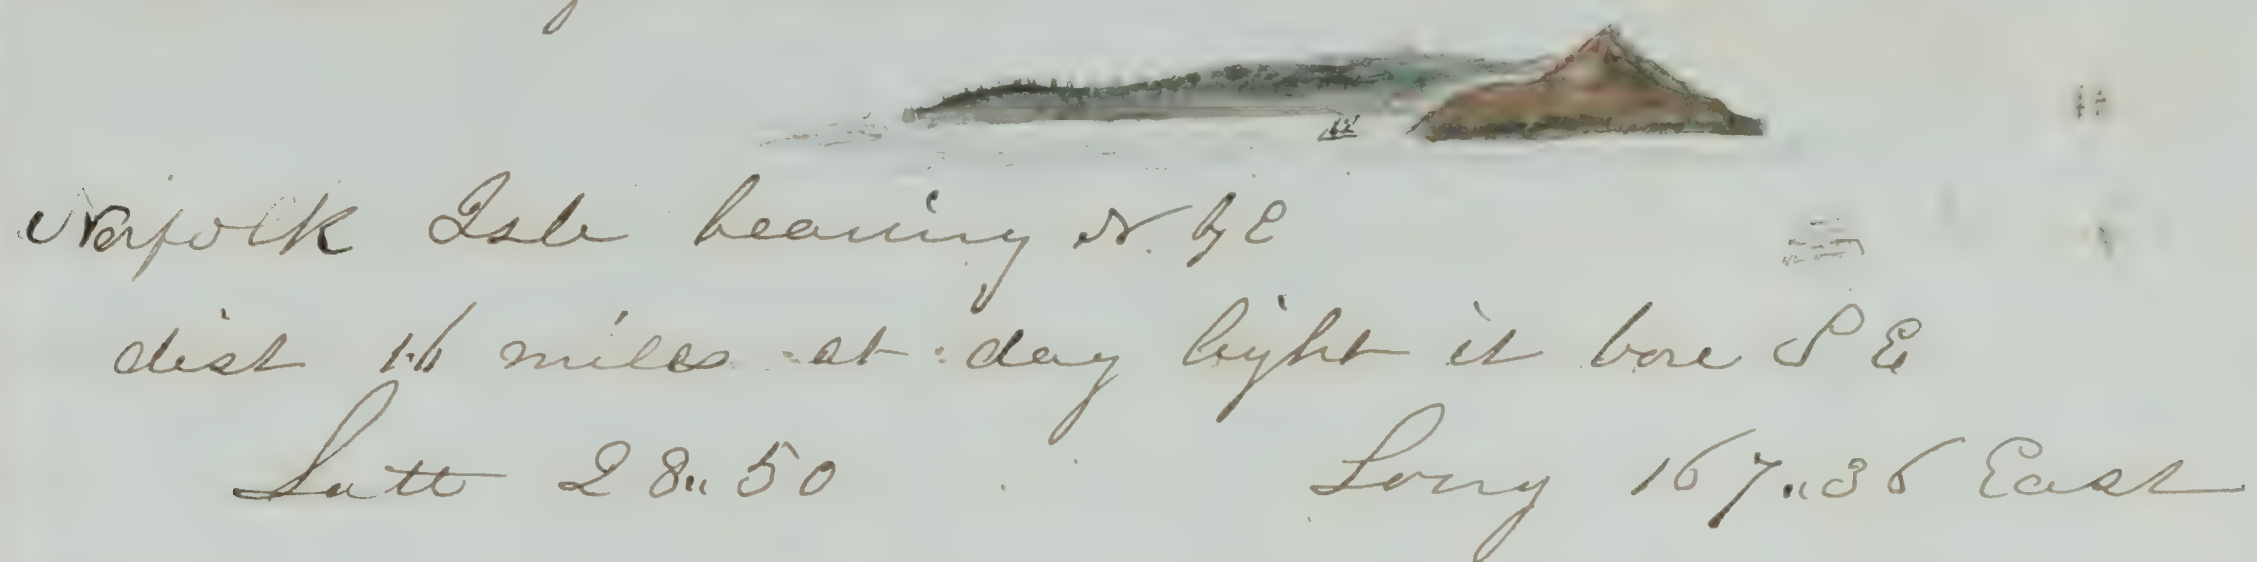 Norfolk Isle bearing N. by E
dist 16 miles at day light it bore S E
Latt 28„50 Long 167„36 East